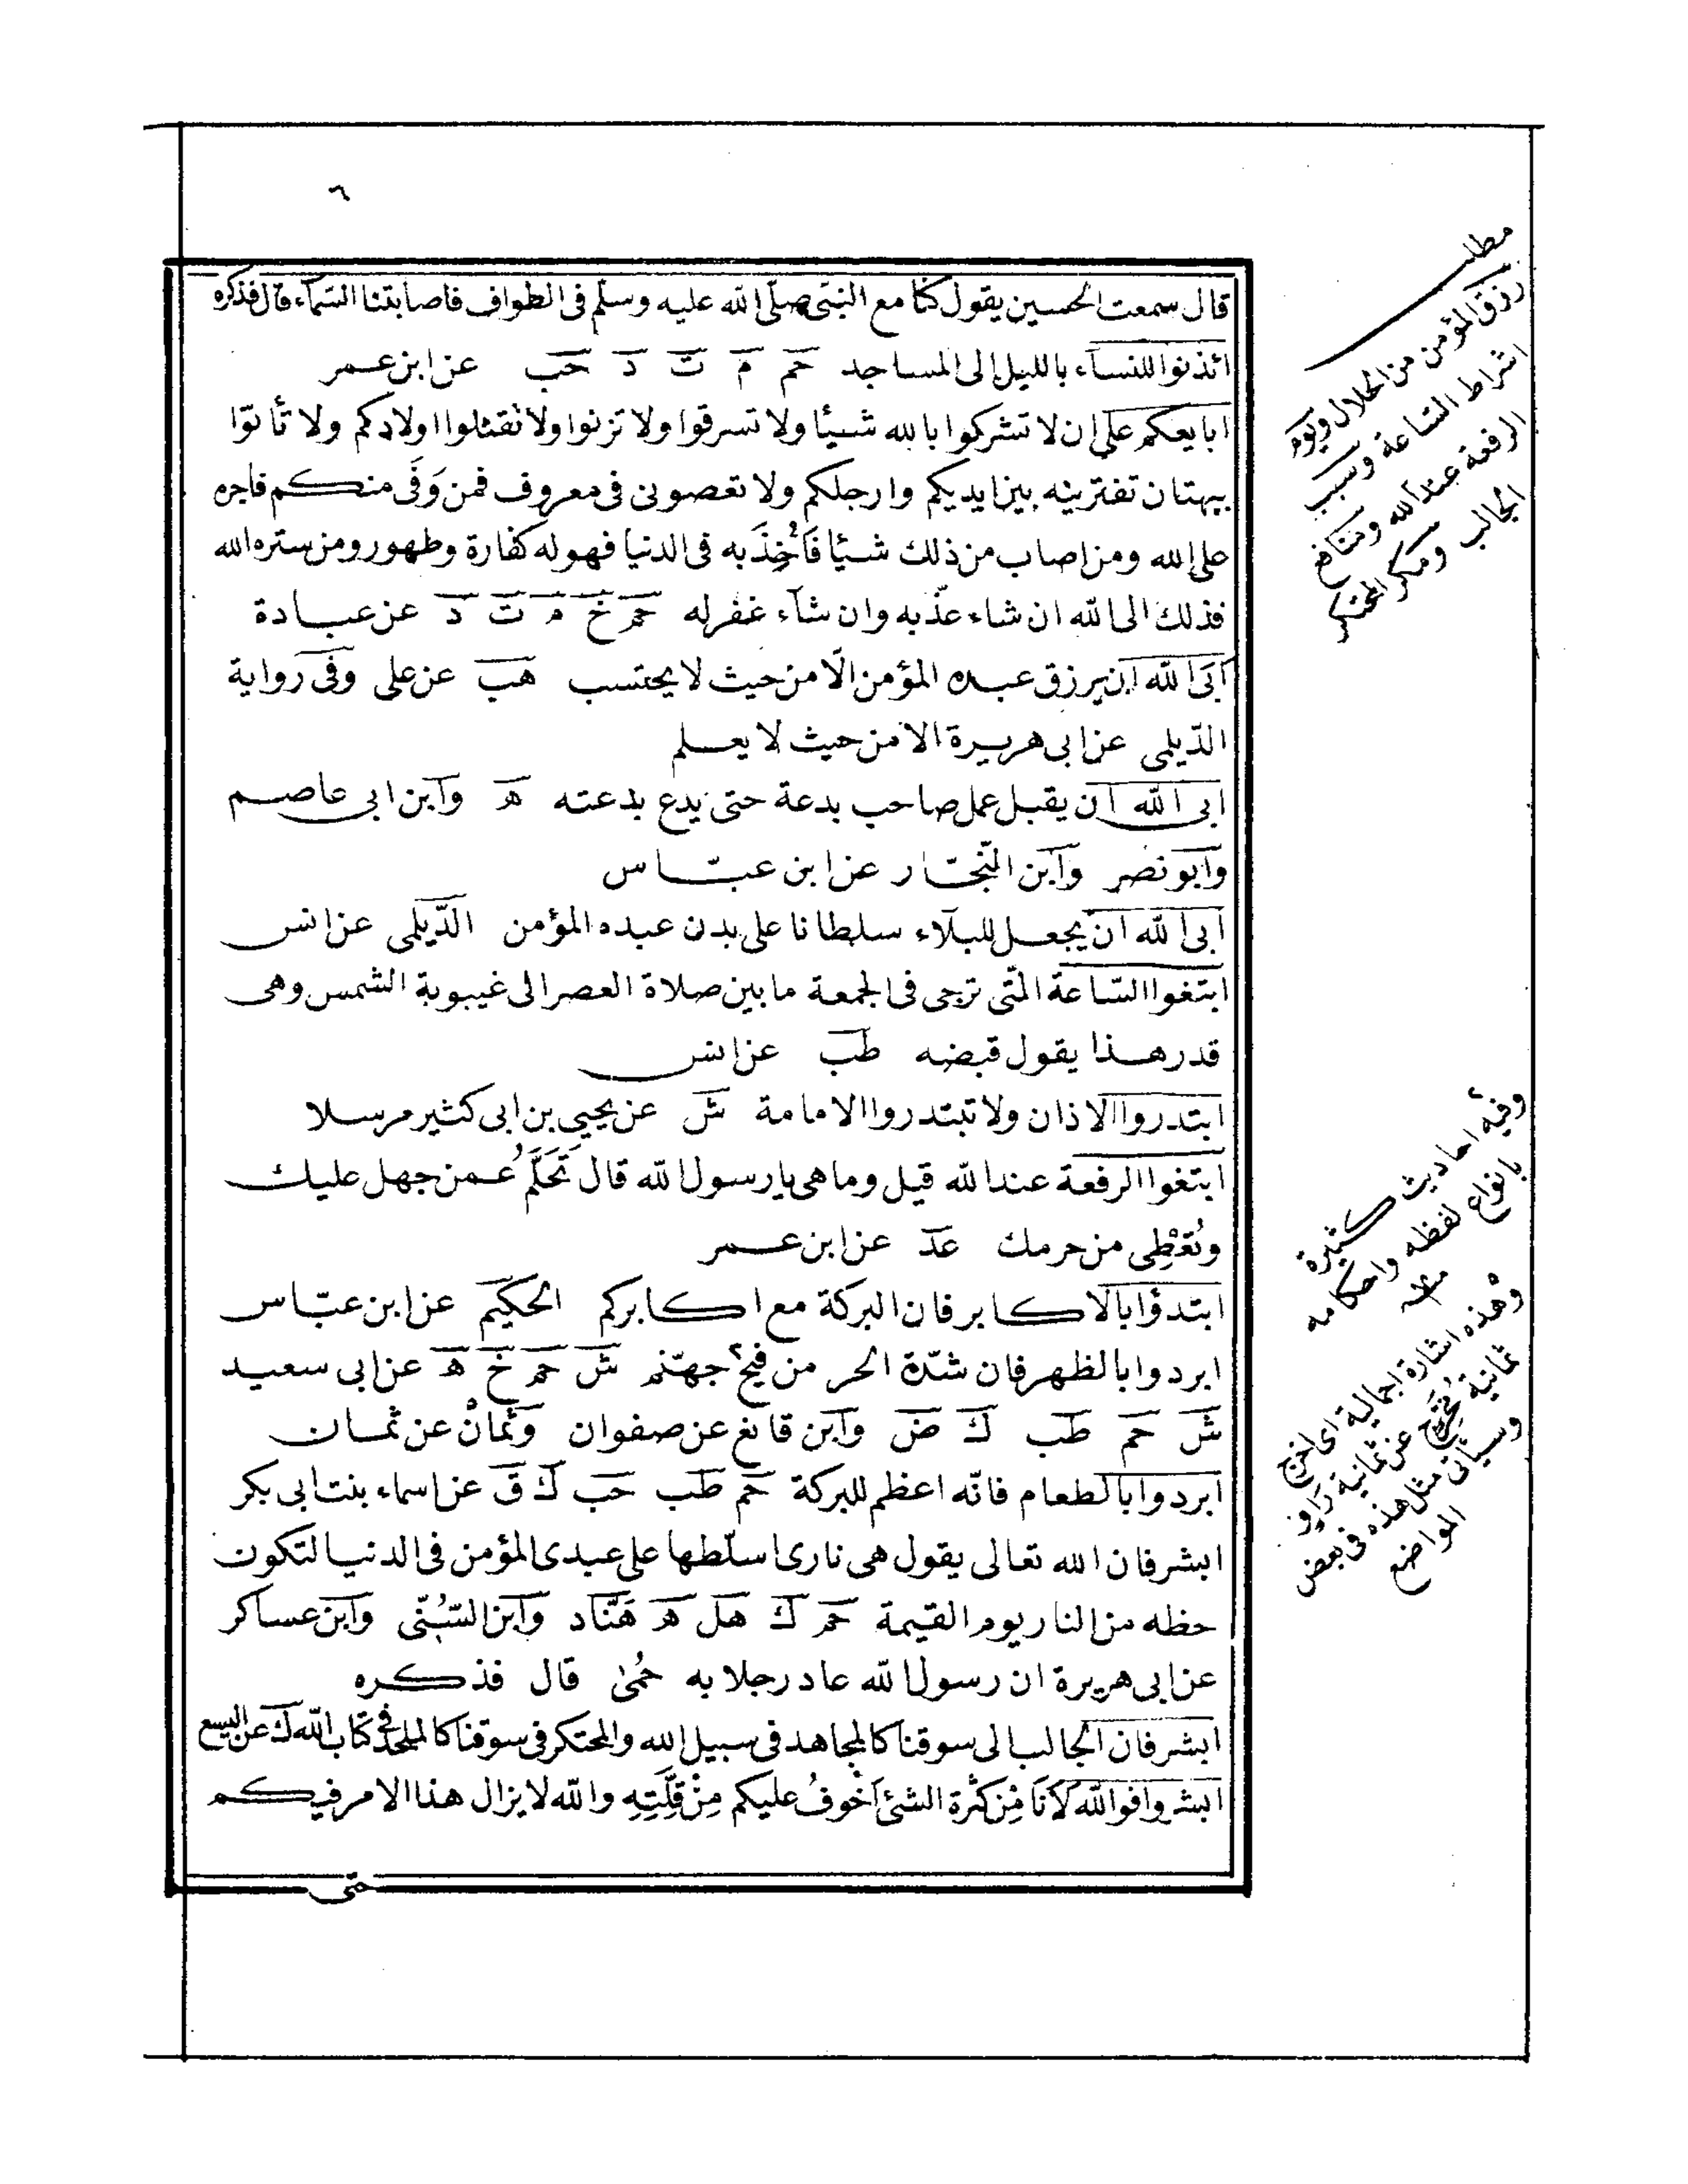 ٦
قال سمعت الحسين يقول كنا مع النبى صلى الله عليه وسلم فى الطواف فاصابتنا السمآء قال فذكره
ائذنوا للنسآء بالليل الى المساجد حم م ت د حب عن ابن عمر
ابايعكم على ان لا تشركوا بالله شيئا ولا تسرقوا ولا تزنوا ولا تقتلوا اولادكم ولا تأتوا
ببهتان تفترينه بين ايديكم وارجلكم ولا تعصونى فى معروف فمن وَفَى منكم فاجره
على الله ومن اصاب من ذلك شيئا فَاُخِذَ به فى الدنيا فهوله كفارة وطهور ومن ستره الله
فذلك الى الله ان شاء عذّبه وان شآء غفرله حم خ م ت د عن عبادة
اَبَى الله ان يرزق عبده المؤمن الّا من حيث لا يحتسب هب عن على وفى رواية
الدّيلمى عن ابى هريرة الا من حيث لا يعلم
ابى الله ان يقبل عمل صاحب بدعة حتى يدع بدعته ه وابن ابى عاصم
وابو نصر وابن النّجّار عن ابن عبّاس
ابى الله ان يجعل للبلآء سلطانا على بدن عبده المؤمن الدّيلمى عن انس
ابتغوا السّاعة الّتى ترجى فى الجمعة ما بين صلاة العصر الى غيبوبة الشمس وهى
قدر هذا يقول قبضه طب عن انس
ابتدروا الاذان ولا تبتدروا الامامة ش عن يحيى بن ابى كثير مرسلا
ابتغوا الرفعة عند الله قيل وما هى يا رسول الله قال تَحَلَّمُ عمن جهل عليك
وتُعْطِى من حرمك عد عن ابن عمر
ابتدؤا بالاكابر فان البركة مع اكابركم الحكيم عن ابن عبّاس
ابردوا بالظهر فان شدّة الحر من فيح جهنّم ش حم خ ه عن ابى سعيد
ش حم طب ك ض وابن قانع عن صفوان وثمانْ عن ثمان
ابردوا بالطعام فانّه اعظم للبركة حم طب حب ك ق عن اسماء بنت ابى بكر
ابشر فان الله تعالى يقول هى نارى اسلّطها على عبدى المؤمن فى الدنيا لتكون
حظه من النار يوم القيمة حم ك هل ه هنّاد وابن السّنّى وابن عساكر
عن ابى هريرة ان رسول الله عاد رجلا به حُمىٰ قال فذكره
ابشر فان الجالب الى سوقنا كالمجاهد فى سبيل الله والمحتكر فى سوقنا كالملحد فى كتاب الله ك عن اليسع
ابشروا فوالله لَاَنَا مِنْ كثرة الشئ اَخْوفُ عليكم مِنْ قلَّتِهِ والله لا يزال هذا الامر فيكم
حتى
مطلب
رزق المؤمن من الحلال ويوم
اشراط السّاعة وسبب
الرفعة عند الله ومنافع
الجالب ومكر المحتكر
وفيه احاديث كثيرة
بانواع لفظه واحكامه
وهذه اشارة اجمالية اى اخرج
ثمانية مُخَرِّج عن ثمانية رَاوٍ
وسيأتى مثل هذه فى بعض
المواضع